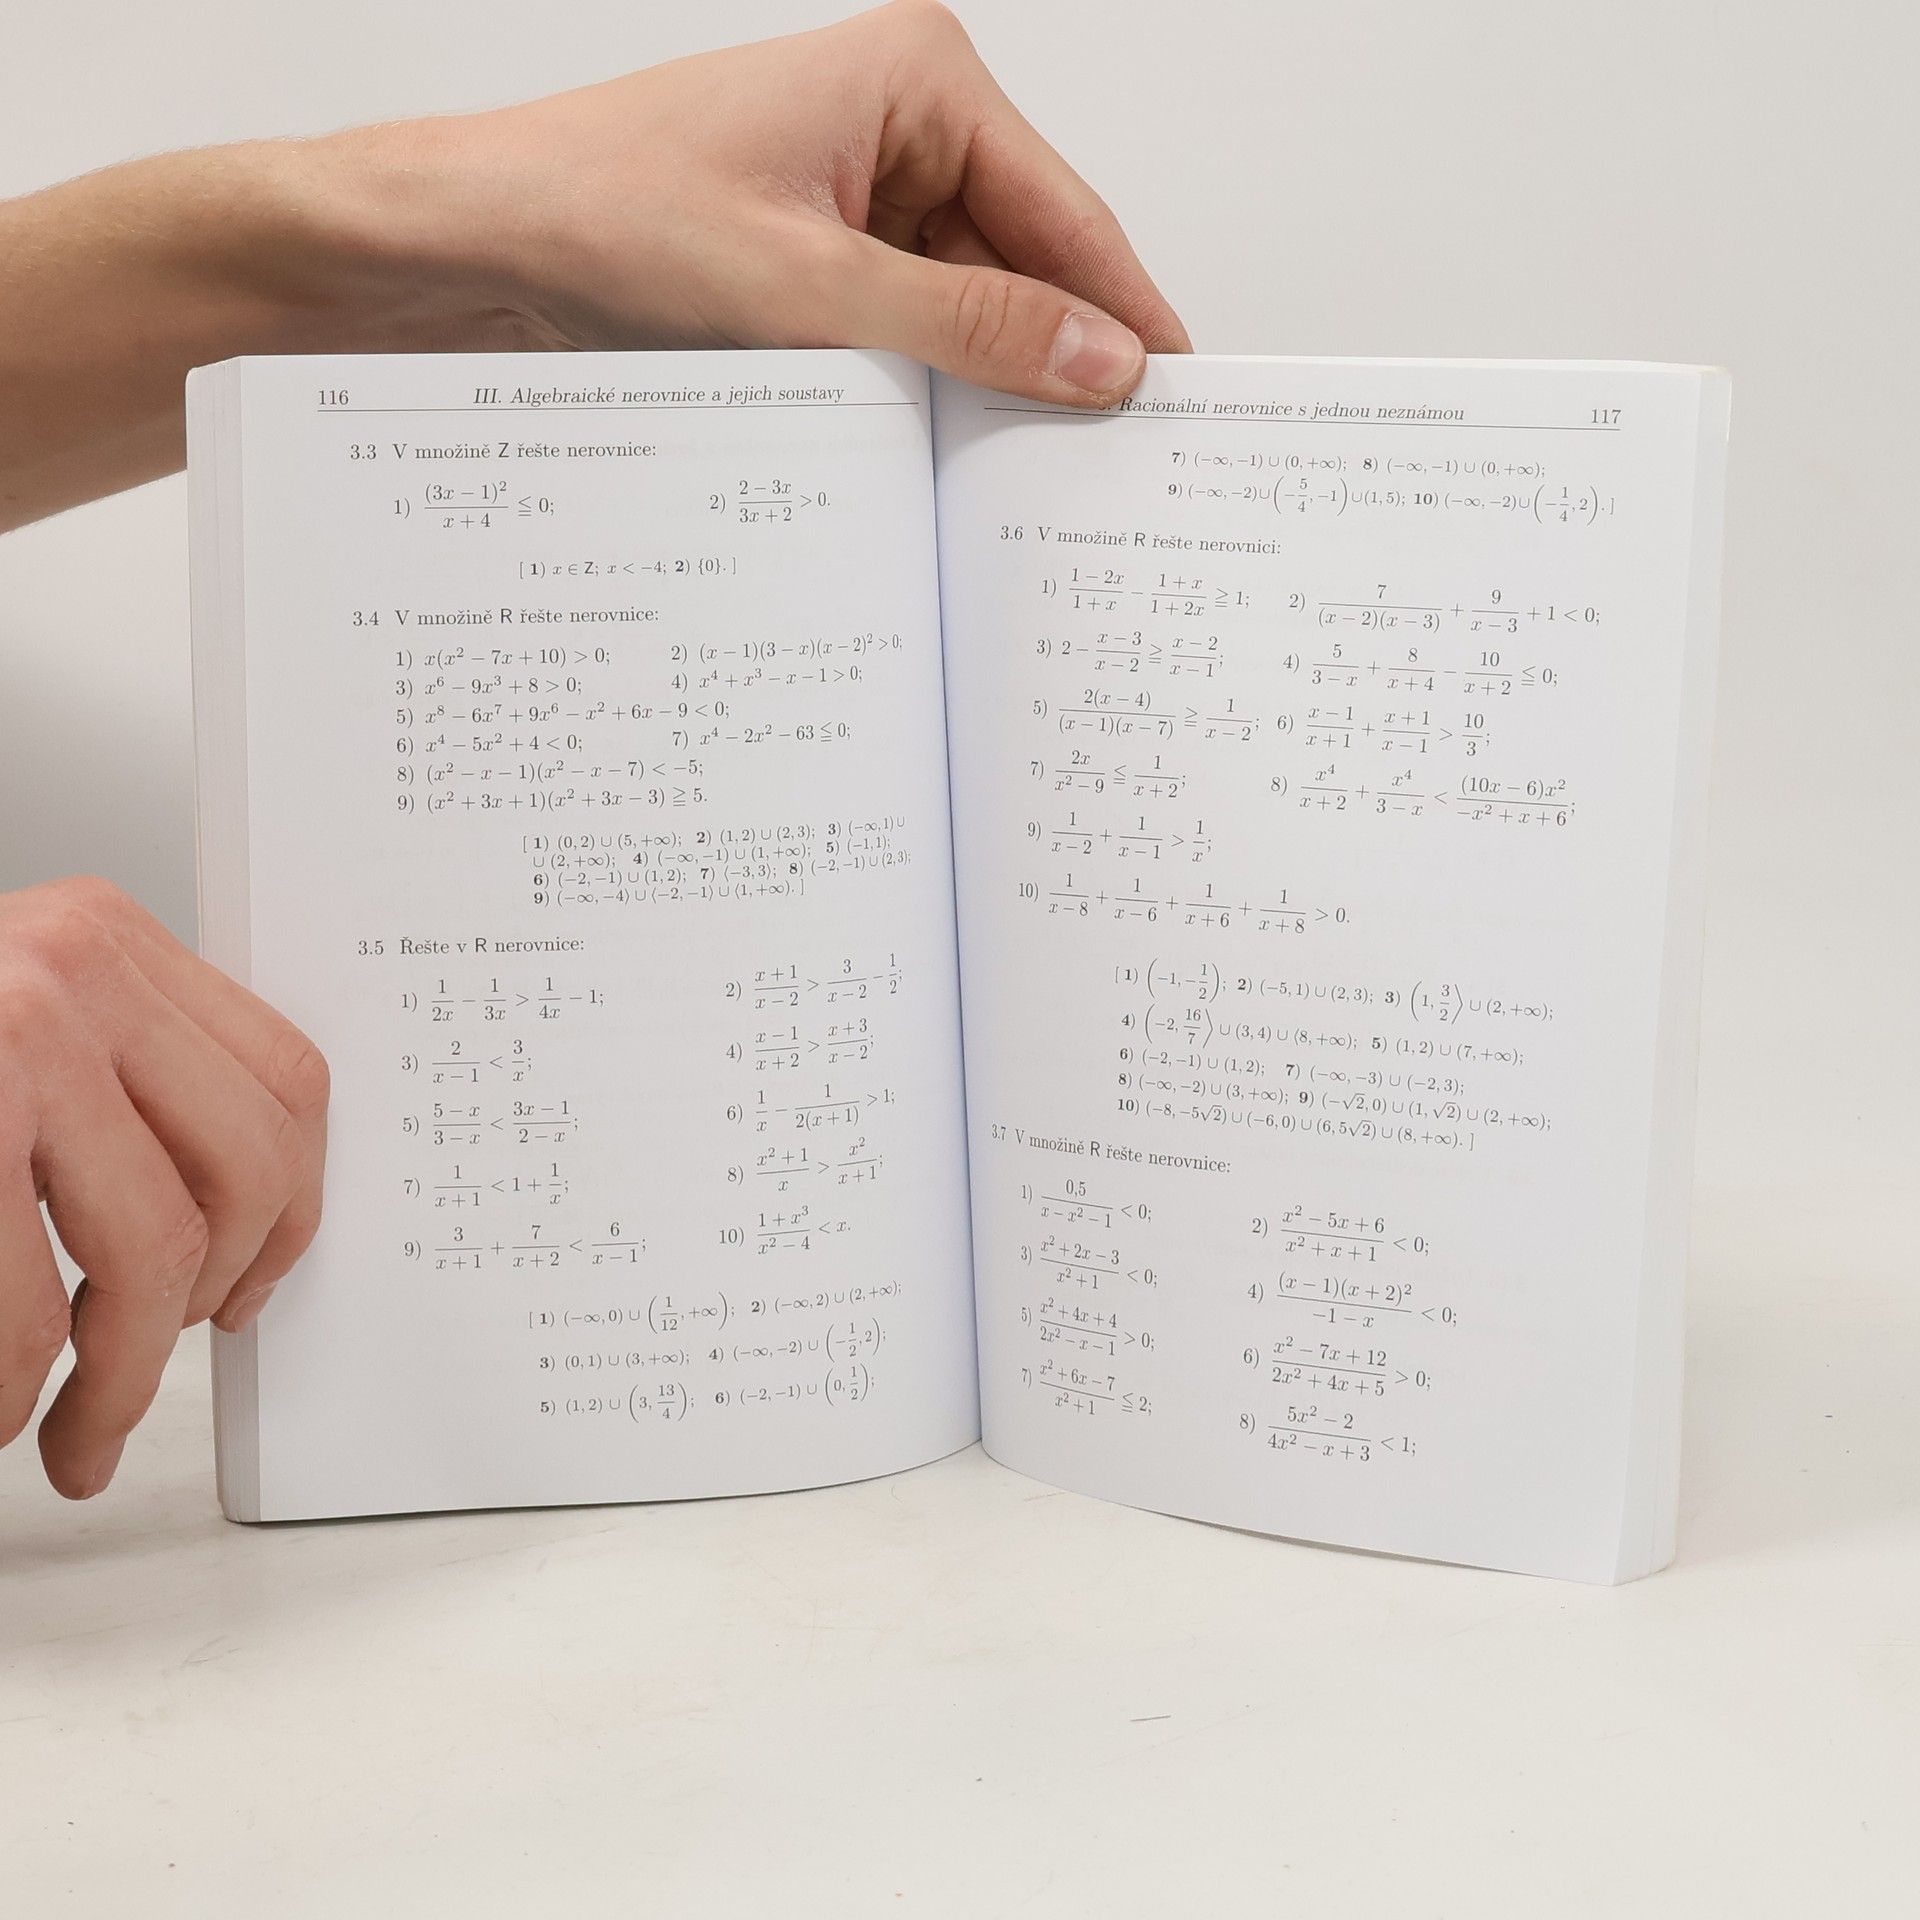 116 III. Algebraické nerovnice a jejich soustavy
3.3 V množině Z řešte nerovnice:
1) (3x − 1)²/(x + 4) ≦ 0; 2) (2 − 3x)/(3x + 2) > 0.
[ 1) x ∈ Z; x < −4; 2) {0}. ]
3.4 V množině R řešte nerovnice:
1) x(x² − 7x + 10) > 0; 2) (x − 1)(3 − x)(x − 2)² > 0;
3) x⁶ − 9x³ + 8 > 0; 4) x⁴ + x³ − x − 1 > 0;
5) x⁸ − 6x⁷ + 9x⁶ − x² + 6x − 9 < 0;
6) x⁴ − 5x² + 4 < 0; 7) x⁴ − 2x² − 63 ≦ 0;
8) (x² − x − 1)(x² − x − 7) < −5;
9) (x² + 3x + 1)(x² + 3x − 3) ≧ 5.
[ 1) (0, 2) ∪ (5, +∞); 2) (1, 2) ∪ (2, 3); 3) (−∞, 1) ∪
∪ (2, +∞); 4) (−∞, −1) ∪ (1, +∞); 5) (−1, 1);
6) (−2, −1) ∪ (1, 2); 7) ⟨−3, 3⟩; 8) (−2, −1) ∪ (2, 3);
9) (−∞, −4⟩ ∪ ⟨−2, −1⟩ ∪ ⟨1, +∞). ]
3.5 Řešte v R nerovnice:
1) 1/(2x) − 1/(3x) > 1/(4x) − 1; 2) (x + 1)/(x − 2) > 3/(x − 2) − 1/2;
3) 2/(x − 1) < 3/x; 4) (x − 1)/(x + 2) > (x + 3)/(x − 2);
5) (5 − x)/(3 − x) < (3x − 1)/(2 − x); 6) 1/x − 1/(2(x + 1)) > 1;
7) 1/(x + 1) < 1 + 1/x; 8) (x² + 1)/x > x²/(x + 1);
9) 3/(x + 1) + 7/(x + 2) < 6/(x − 1); 10) (1 + x³)/(x² − 4) < x.
[ 1) (−∞, 0) ∪ (1/12, +∞); 2) (−∞, 2) ∪ (2, +∞);
3) (0, 1) ∪ (3, +∞); 4) (−∞, −2) ∪ (−1/2, 2);
5) (1, 2) ∪ (3, 13/4); 6) (−2, −1) ∪ (0, 1/2);
Racionální nerovnice s jednou neznámou 117
7) (−∞, −1) ∪ (0, +∞); 8) (−∞, −1) ∪ (0, +∞);
9) (−∞, −2) ∪ (−5/4, −1) ∪ (1, 5); 10) (−∞, −2) ∪ (−1/4, 2). ]
3.6 V množině R řešte nerovnici:
1) (1 − 2x)/(1 + x) − (1 + x)/(1 + 2x) ≧ 1; 2) 7/((x − 2)(x − 3)) + 9/(x − 3) + 1 < 0;
3) 2 − (x − 3)/(x − 2) ≧ (x − 2)/(x − 1); 4) 5/(3 − x) + 8/(x + 4) − 10/(x + 2) ≦ 0;
5) 2(x − 4)/((x − 1)(x − 7)) ≧ 1/(x − 2); 6) (x − 1)/(x + 1) + (x + 1)/(x − 1) > 10/3;
7) 2x/(x² − 9) ≦ 1/(x + 2); 8) x⁴/(x + 2) + x⁴/(3 − x) < (10x − 6)x²/(−x² + x + 6);
9) 1/(x − 2) + 1/(x − 1) > 1/x;
10) 1/(x − 8) + 1/(x − 6) + 1/(x + 6) + 1/(x + 8) > 0.
[ 1) (−1, −1/2); 2) (−5, 1) ∪ (2, 3); 3) (1, 3/2⟩ ∪ (2, +∞);
4) (−2, 16/7⟩ ∪ (3, 4) ∪ ⟨8, +∞); 5) (1, 2) ∪ (7, +∞);
6) (−2, −1) ∪ (1, 2); 7) (−∞, −3) ∪ (−2, 3);
8) (−∞, −2) ∪ (3, +∞); 9) (−√2, 0) ∪ (1, √2) ∪ (2, +∞);
10) (−8, −5√2) ∪ (−6, 0) ∪ (6, 5√2) ∪ (8, +∞). ]
3.7 V množině R řešte nerovnice:
1) 0,5/(x − x² − 1) < 0; 2) (x² − 5x + 6)/(x² + x + 1) < 0;
3) (x² + 2x − 3)/(x² + 1) < 0; 4) (x − 1)(x + 2)²/(−1 − x) < 0;
5) (x² + 4x + 4)/(2x² − x − 1) > 0; 6) (x² − 7x + 12)/(2x² + 4x + 5) > 0;
7) (x² + 6x − 7)/(x² + 1) ≦ 2; 8) (5x² − 2)/(4x² − x + 3) < 1;